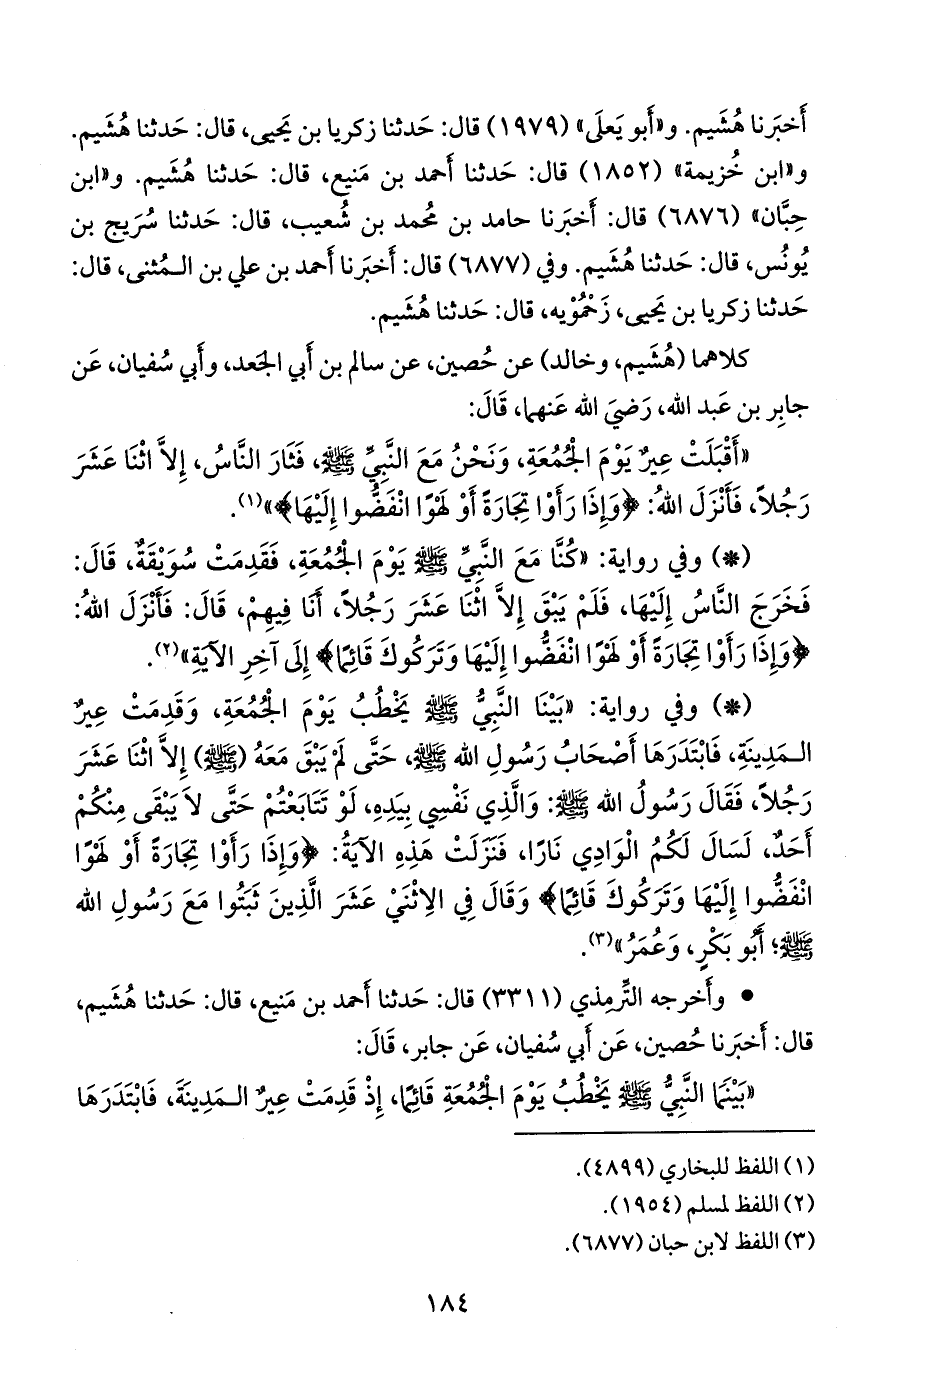 أَخبَرنا هُشَيم. و«أَبو يَعلَى» (١٩٧٩) قال: حَدثنا زكريا بن يَحيى، قال: حَدثنا هُشَيم.
و«ابن خُزيمة» (١٨٥٢) قال: حَدثنا أَحمد بن مَنيع، قال: حَدثنا هُشَيم. و«ابن
حِبَّان» (٦٨٧٦) قال: أَخبَرنا حامد بن مُحمد بن شُعيب، قال: حَدثنا سُرَيج بن
يُونُس، قال: حَدثنا هُشَيم. وفي (٦٨٧٧) قال: أَخبَرنا أَحمد بن علي بن الـمُثنى، قال:
حَدثنا زكريا بن يَحيى، زَحْمُوْيه، قال: حَدثنا هُشَيم.
كلاهما (هُشَيم، وخالد) عن حُصين، عن سالم بن أَبي الجَعد، وأَبي سُفيان، عَن
جابِر بن عَبد الله، رَضيَ الله عَنهما، قَالَ:
«أَقْبَلَتْ عِيرٌ يَوْمَ الْجُمُعَةِ، وَنَحْنُ مَعَ النَّبِيِّ ﷺ، فَثَارَ النَّاسُ، إِلاَّ اثْنَا عَشَرَ
رَجُلاً، فَأَنْزَلَ اللهُ: ﴿وَإِذَا رَأَوْا تِجَارَةً أَوْ لَهْوًا انْفَضُّوا إِلَيْهَا﴾»(١).
(*) وفي رواية: «كُنَّا مَعَ النَّبِيِّ ﷺ يَوْمَ الْجُمُعَةِ، فَقَدِمَتْ سُوَيْقَةٌ، قَالَ:
فَخَرَجَ النَّاسُ إِلَيْهَا، فَلَمْ يَبْقَ إِلاَّ اثْنَا عَشَرَ رَجُلاً، أَنَا فِيهِمْ، قَالَ: فَأَنْزَلَ اللهُ:
﴿وَإِذَا رَأَوْا تِجَارَةً أَوْ لَهْوًا انْفَضُّوا إِلَيْهَا وَتَرَكُوكَ قَائِمًا﴾ إِلَى آخِرِ الآيَةِ»(٢).
(*) وفي رواية: «بَيْنَا النَّبِيُّ ﷺ يَخْطُبُ يَوْمَ الْجُمُعَةِ، وَقَدِمَتْ عِيرٌ
الـمَدِينَةِ، فَابْتَدَرَهَا أَصْحَابُ رَسُولِ الله ﷺ، حَتَّى لَمْ يَبْقَ مَعَهُ (ﷺ) إِلاَّ اثْنَا عَشَرَ
رَجُلاً، فَقَالَ رَسُولُ الله ﷺ: وَالَّذِي نَفْسِي بِيَدِهِ، لَوْ تَتَابَعْتُمْ حَتَّى لاَ يَبْقَى مِنْكُمْ
أَحَدٌ، لَسَالَ لَكُمُ الْوَادِي نَارًا، فَنَزَلَتْ هَذِهِ الآيَةُ: ﴿وَإِذَا رَأَوْا تِجَارَةً أَوْ لَهْوًا
انْفَضُّوا إِلَيْهَا وَتَرَكُوكَ قَائِمًا﴾ وَقَالَ فِي الِاثْنَيْ عَشَرَ الَّذِينَ ثَبَتُوا مَعَ رَسُولِ الله
ﷺ؛ أَبُو بَكْرٍ، وَعُمَرُ»(٣).
• وأَخرجه التِّرمِذي (٣٣١١) قال: حَدثنا أَحمد بن مَنيع، قال: حَدثنا هُشَيم،
قال: أَخبَرنا حُصين، عَن أَبي سُفيان، عَن جابر، قَالَ:
«بَيْنَمَا النَّبِيُّ ﷺ يَخْطُبُ يَوْمَ الْجُمُعَةِ قَائِمًا، إِذْ قَدِمَتْ عِيرٌ الـمَدِينَةَ، فَابْتَدَرَهَا
(١) اللفظ للبخاري (٤٨٩٩).
(٢) اللفظ لمسلم (١٩٥٤).
(٣) اللفظ لابن حبان (٦٨٧٧).
١٨٤